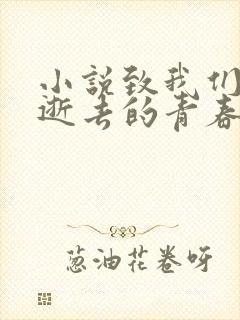 小説致我们
逝去的青春
葱油花卷呀